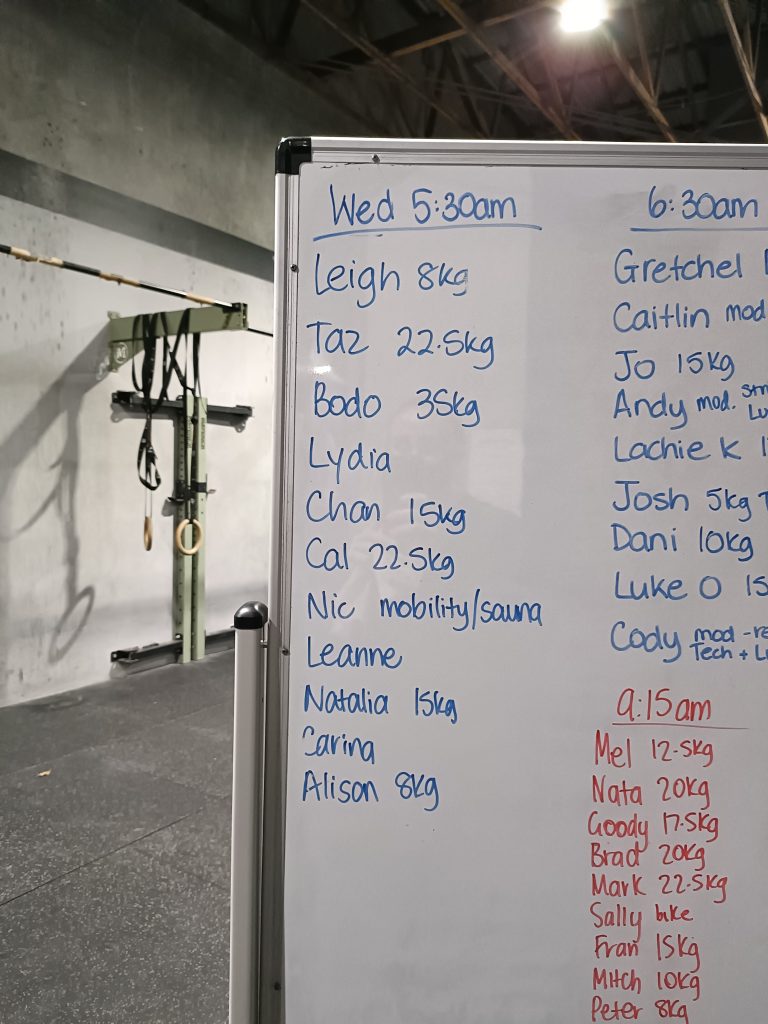 Wed 5:30am
Leigh 8kg
Taz 22.5kg
Bodo 35kg
Lydia
Chan 15kg
Cal 22.5kg
Nic mobility/sauna
Leanne
Natalia 15kg
Carina
Alison 8kg
6:30am
Gretchel
Caitlin mod
Jo 15kg
Andy mod.
Lachie K
Josh 5kg
Dani 10kg
Luke O
Cody mod
Tech +
9:15am
Mel 12.5kg
Nata 20kg
Goody 17.5kg
Brad 20kg
Mark 22.5kg
Sally bike
Fran 15kg
Mitch 10kg
Peter 8kg